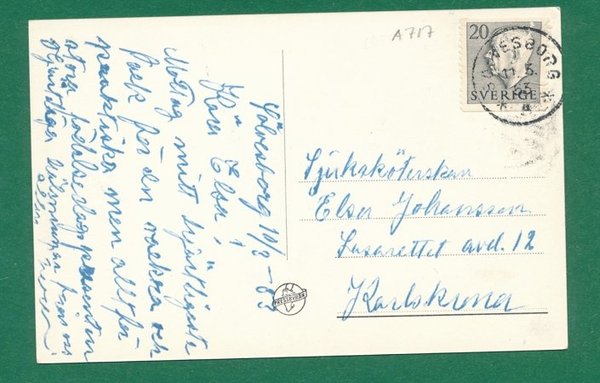 A717
20
SVERIGE
SÖLVESBORG
11. 5.
53
Sölvesborg 10/5 -53
Kära Elsa!
Mottag mitt hjärtligaste
tack för den vackra och
praktiska men alltför
stora födelsedagspresenten
Hjärtliga hälsningar från oss
alla
Sjuksköterskan
Elsa Johansson
Lasarettet avd. 12
Karlskrona
PRESSBYRÅN